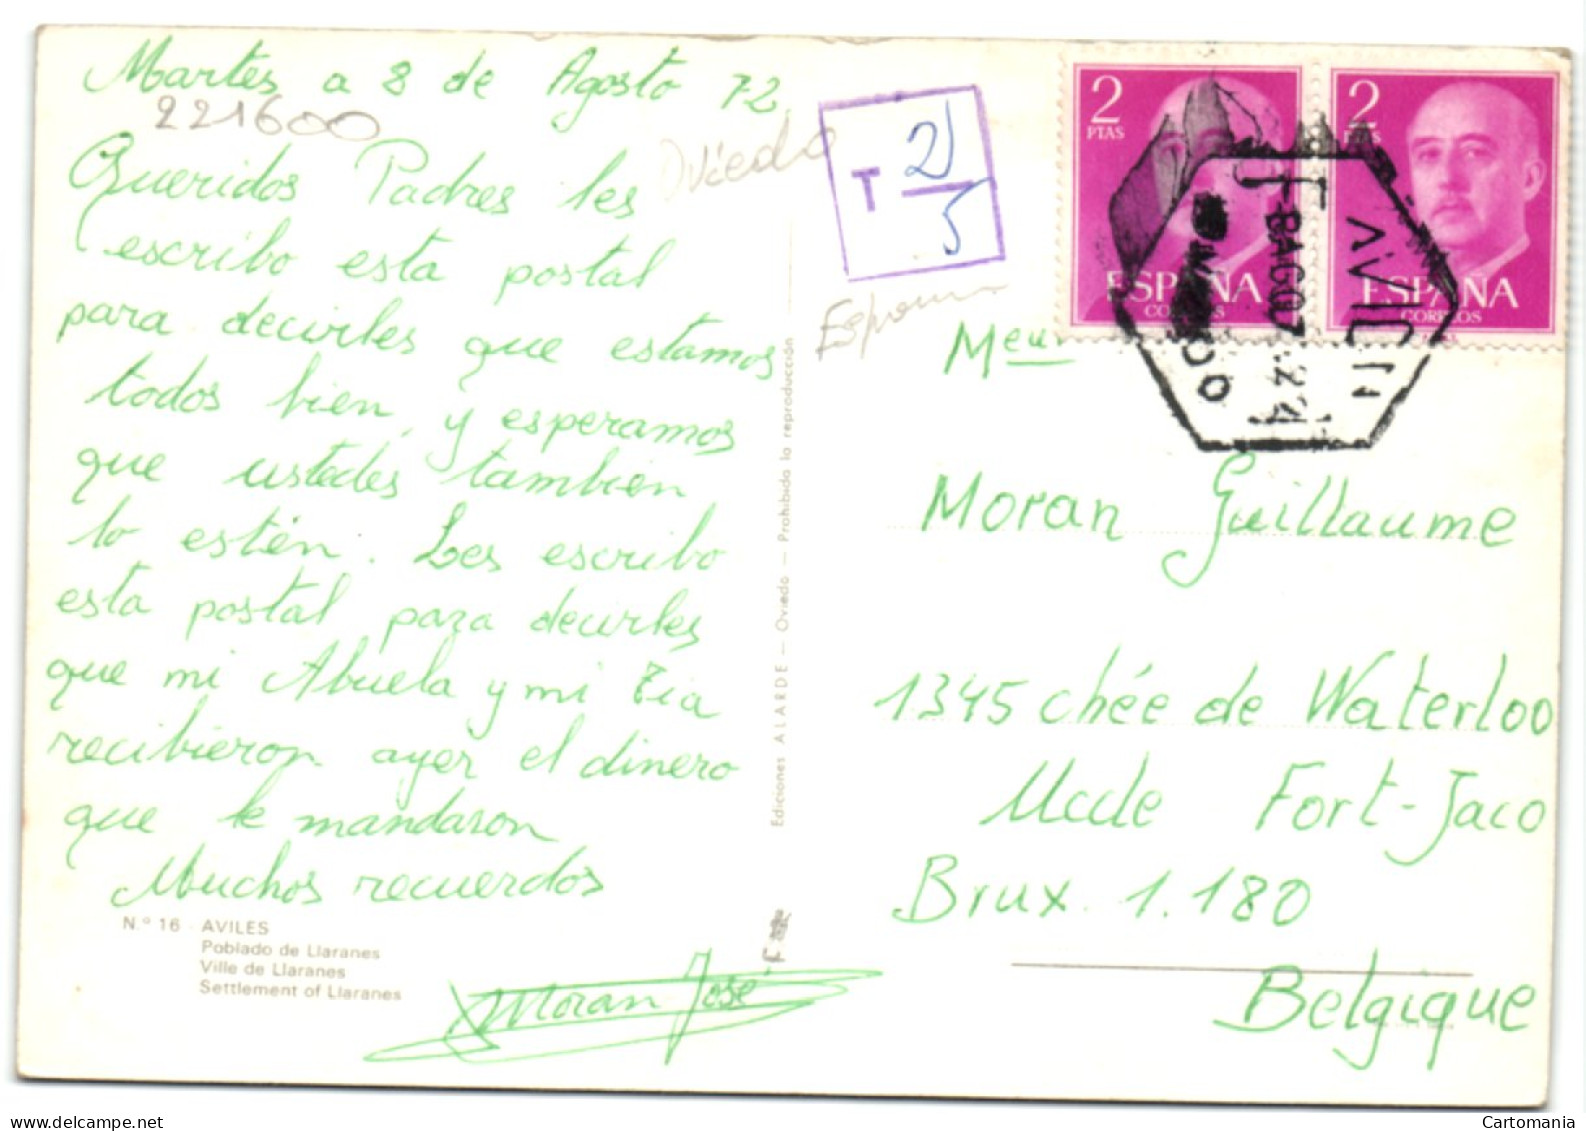 Martes a 8 de Agosto 72
221600
Queridos Padres les
escribo esta postal
para decirles que estamos
todos bien, y esperamos
que ustedes tambien
lo estén. Les escribo
esta postal para decirles
que mi Abuela y mi tia
recibieron ayer el dinero
que le mandaron
Muchos recuerdos
Moran José
N.º 16 - AVILES
Poblado de Llaranes
Ville de Llaranes
Settlement of Llaranes
Ediciones ALARDE - Oviedo - Prohibida la reproducción
Oviedo
T 2/5
2 PTAS
ESPAÑA
CORREOS
2 PTAS
ESPAÑA
CORREOS
Meur
Moran Guillaume
1345 chée de Waterloo
Uccle Fort-Jaco
Brux. 1.180
Belgique
Cartomania
www.delcampe.net